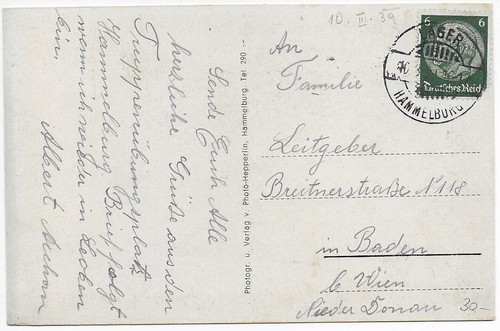 Sende Euch Alle
herzliche Grüße aus den
Truppenübungsplatz
Hammelburg Brief folgt
wenn ich wieder in Leoben
bin,
Albert
Photogr. u. Verlag v. Photo-Hepperlin, Hammelburg. Tel 290 --
10. III. 39
6 6
Deutsches Reich
LAGER
HAMMELBURG
An
Familie
Leitgeber
Breitnerstraße N 118
in Baden
b Wien
Nieder Donau
30-